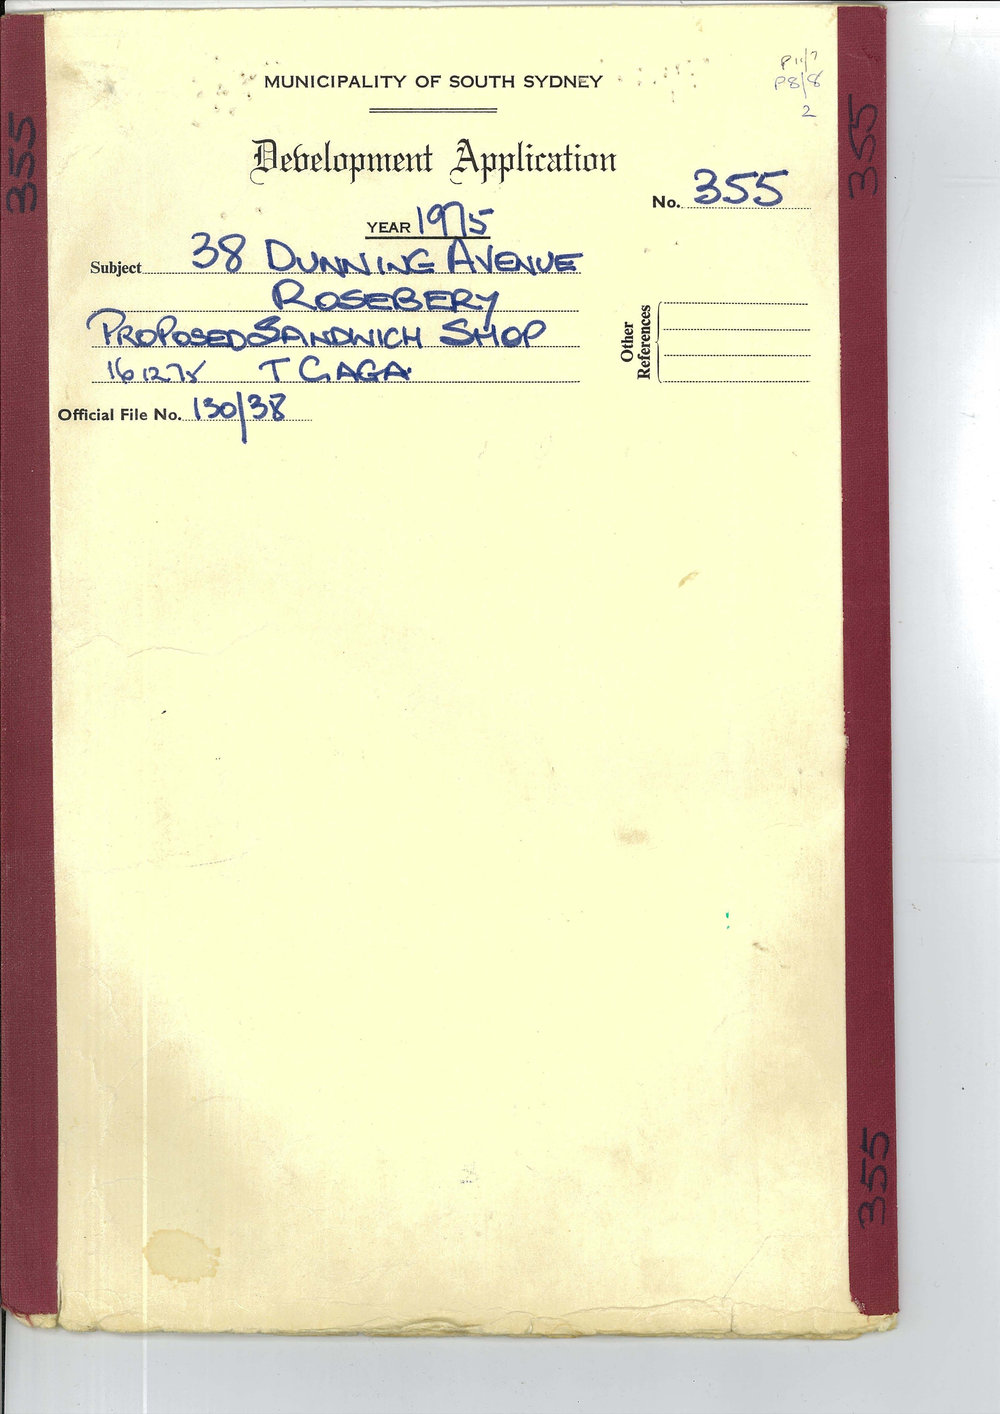 P11/7
MUNICIPALITY OF SOUTH SYDNEY
P8/8
2
Development Application
No. 355
YEAR 1975
Subject 38 DUNNING AVENUE
ROSEBERY
PROPOSED SANDWICH SHOP
16 12 75 T GAGA
Official File No. 130/38
Other References
355
355
355